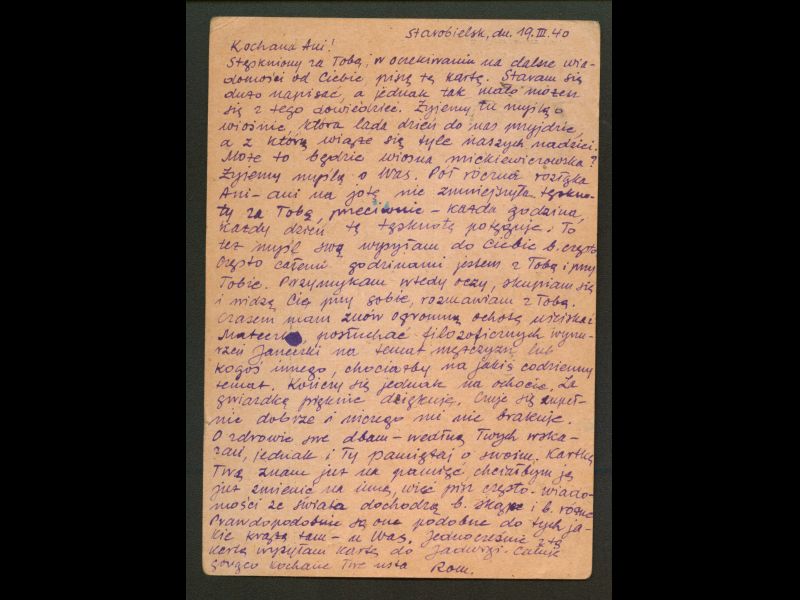 Starobielsk, dn. 19.III.40
Kochana Ani!
Stęskniony za Tobą, w oczekiwaniu na dalsze wia-
domości od Ciebie piszę tę kartę. Staram się
dużo napisać, a jednak tak mało możesz
się z tego dowiedzieć. Żyjemy tu myślą o
wiośnie, która lada dzień do nas przyjdzie,
a z którą wiąże się tyle naszych nadziei.
Może to będzie wiosna mickiewiczowska?
Żyjemy myślą o Was. Pół roczna rozłąka
Ani-ani na jotę nie zmniejszyła tęskno-
ty za Tobą, przeciwnie – każda godzina,
każdy dzień tę tęsknotę potęguje. To
też myśl swą wysyłam do Ciebie b. często
Często całemi godzinami jestem z Tobą i przy
Tobie. Przymykam wtedy oczy, skupiam się
i widzę Cię przy sobie, rozmawiam z Tobą.
Czasem mam znów ogromną ochotę uściskać
Mateczkę, posłuchać filozoficznych wynu-
rzeń Janeczki na temat mężczyzn lub
kogoś innego, chociażby na jakiś codzienny
temat. Kończy się jednak na ochocie. Za
gwiazdkę pięknie dziękuję. Czuję się zupeł-
nie dobrze i niczego mi nie brakuje.
O zdrowie swe dbam – według Twych wska-
zań, jednak i Ty pamiętaj o swoim. Kartkę
Twą znam już na pamięć chciałbym ją
już zmienić na inną, więc pisz często. Wiado-
mości ze świata dochodzą b. skąpe i b. różne
Prawdopodobnie są one podobne do tych ja-
kie krążą tam – u Was. Jednocześnie z tą
kartą wysyłam kartę do Jadwigi. Całuję
gorąco kochane Twe usta Rom.